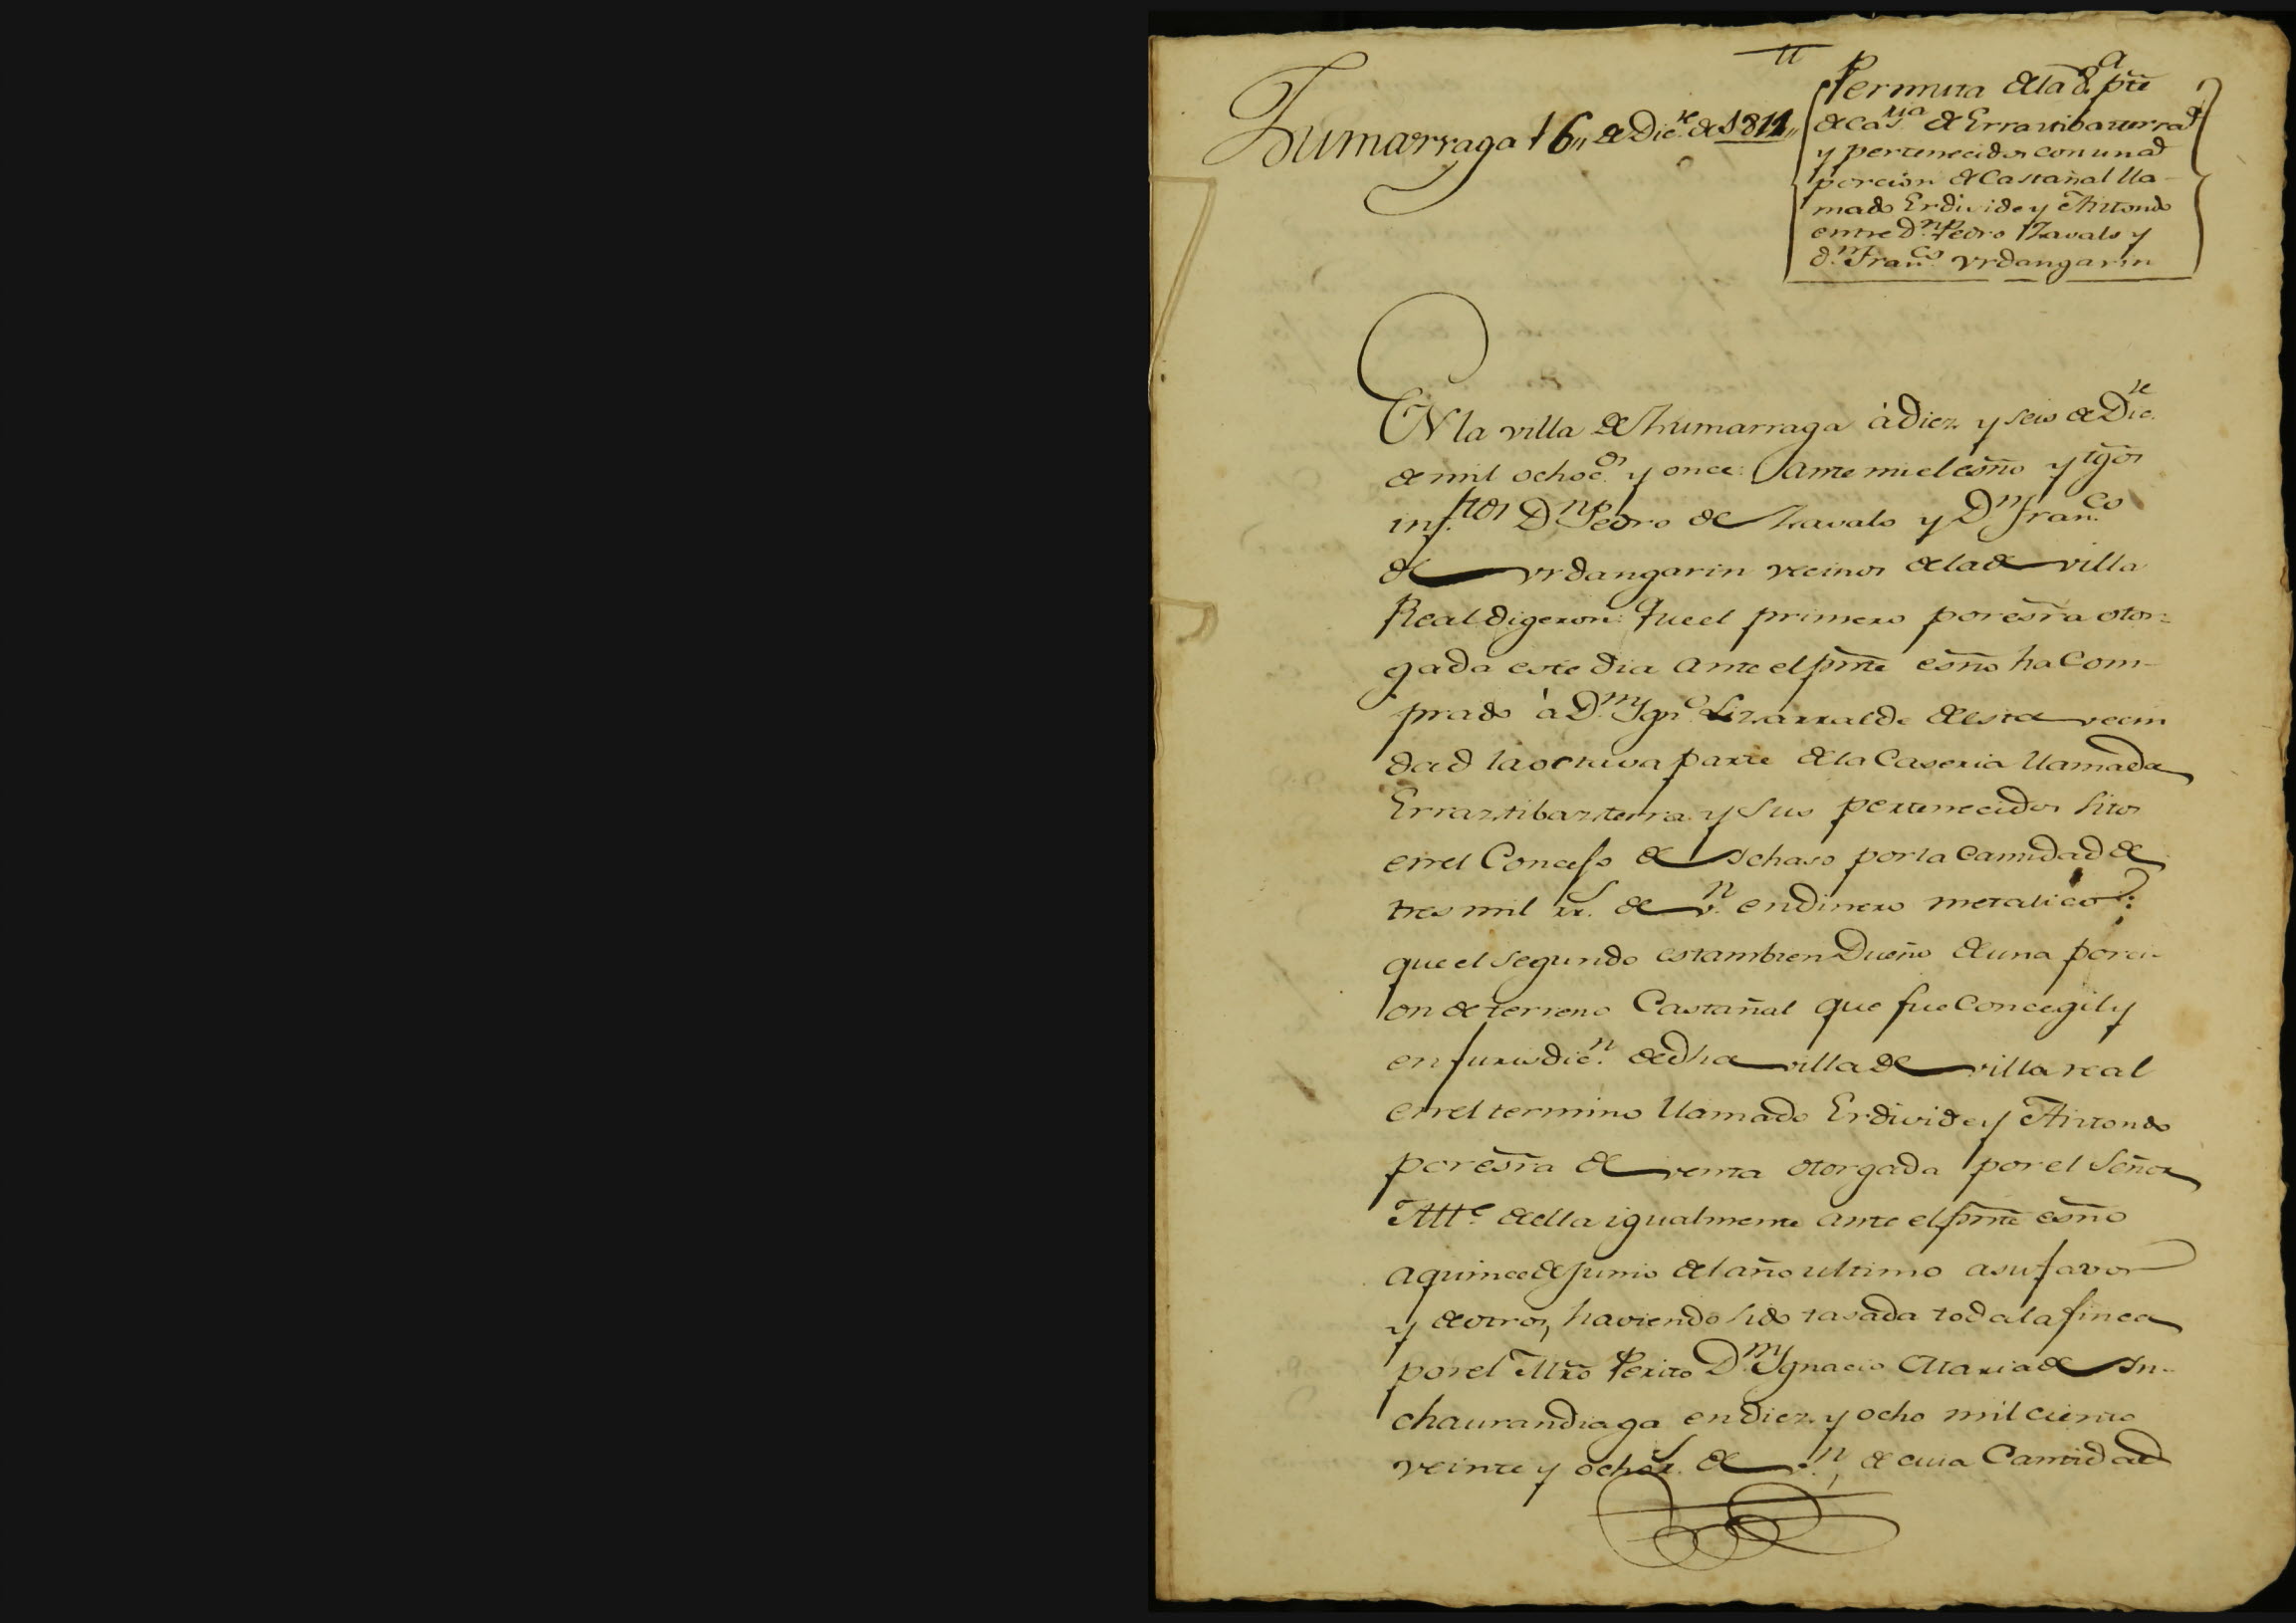 Zumarraga 16,, de Dic.re de 1811,,
Permuta de la 8.a pte
de cas.ria de Erraztibazterra
y pertenecidos con una
porcion de Castañal lla-
mado Erdivide y Aritondo
entre D.n Pedro Zavalo y
d.n Fran.co Urdangarin
EN la villa de Zumarraga à diez y seis de Dic.re
de mil ochoc.os y once: Ante mi el esño y tgos
inf.tos D.n Pedro de Zavalo y D.n Fran.co
de Urdangarin vecinos de la de villa
Real digeron: Que el primero por esra otor-
gada este dia ante el pnte esño ha Com-
prado à D.n Ygn.o Lizarralde de esta vecin
dad la octava parte de la Caseria llamada
Erraztibazterra y sus pertenecidos sitos
en el Concejo de Ichaso por la cantidad de
tres mil rr.s de v.n en dinero metalico:
que el segundo es tambien Dueño de una porci-
on de terreno Castañal que fue Concegil y
en jurisdic.n de dha villa de villa real
en el termino llamado Erdivide y Aritondo
por esra de venta otorgada por el Señor
Alc.e de ella igualmente ante el pnte esño
a quince de Junio del año ultimo a su favor
y de otros, haviendo sido tasada toda la finca
por el Mro Perito D.n Ygnacio Maria de In-
chaurandiaga en diez y ocho mil ciento
veinte y ocho r.s de v.n, de cuia Cantidad